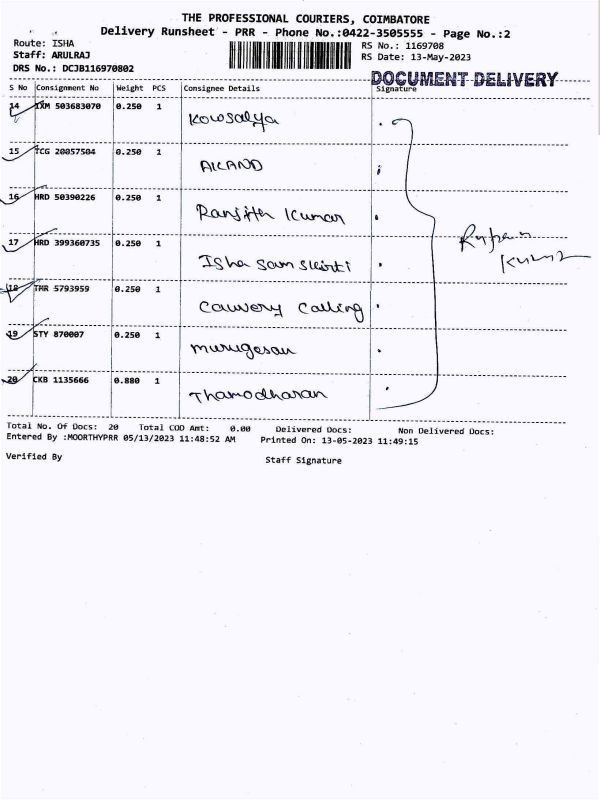 THE PROFESSIONAL COURIERS, COIMBATORE
Delivery Runsheet - PRR - Phone No.:0422-3505555 - Page No.:2
Route: ISHA
Staff: ARULRAJ
DRS No.: DCJB116970802
RS No.: 1169708
RS Date: 13-May-2023
DOCUMENT DELIVERY
S No Consignment No Weight PCS Consignee Details Signature
14 IXM 503683070 0.250 1 Kowsalya
15 TCG 20057504 0.250 1 AKAND
16 HRD 50390226 0.250 1 Ranjith Kumar
17 HRD 399360735 0.250 1 Isha Samskriti
18 THR 5793959 0.250 1 Cauvery Calling
19 STY 870007 0.250 1 Murugesan
20 CKB 1135666 0.880 1 Thamodharan
Kumar
Total No. Of Docs: 20 Total COD Amt: 0.00 Delivered Docs: Non Delivered Docs:
Entered By :MOORTHYPRR 05/13/2023 11:48:52 AM Printed On: 13-05-2023 11:49:15
Verified By Staff Signature